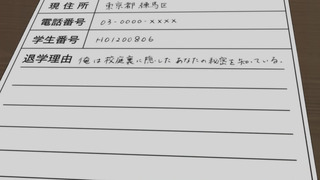 現住所 東京都 練馬区
電話番号 03-0000-xxxx
学生番号 H01200806
退学理由 俺は校庭裏に隠したあなたの秘密を知っている。